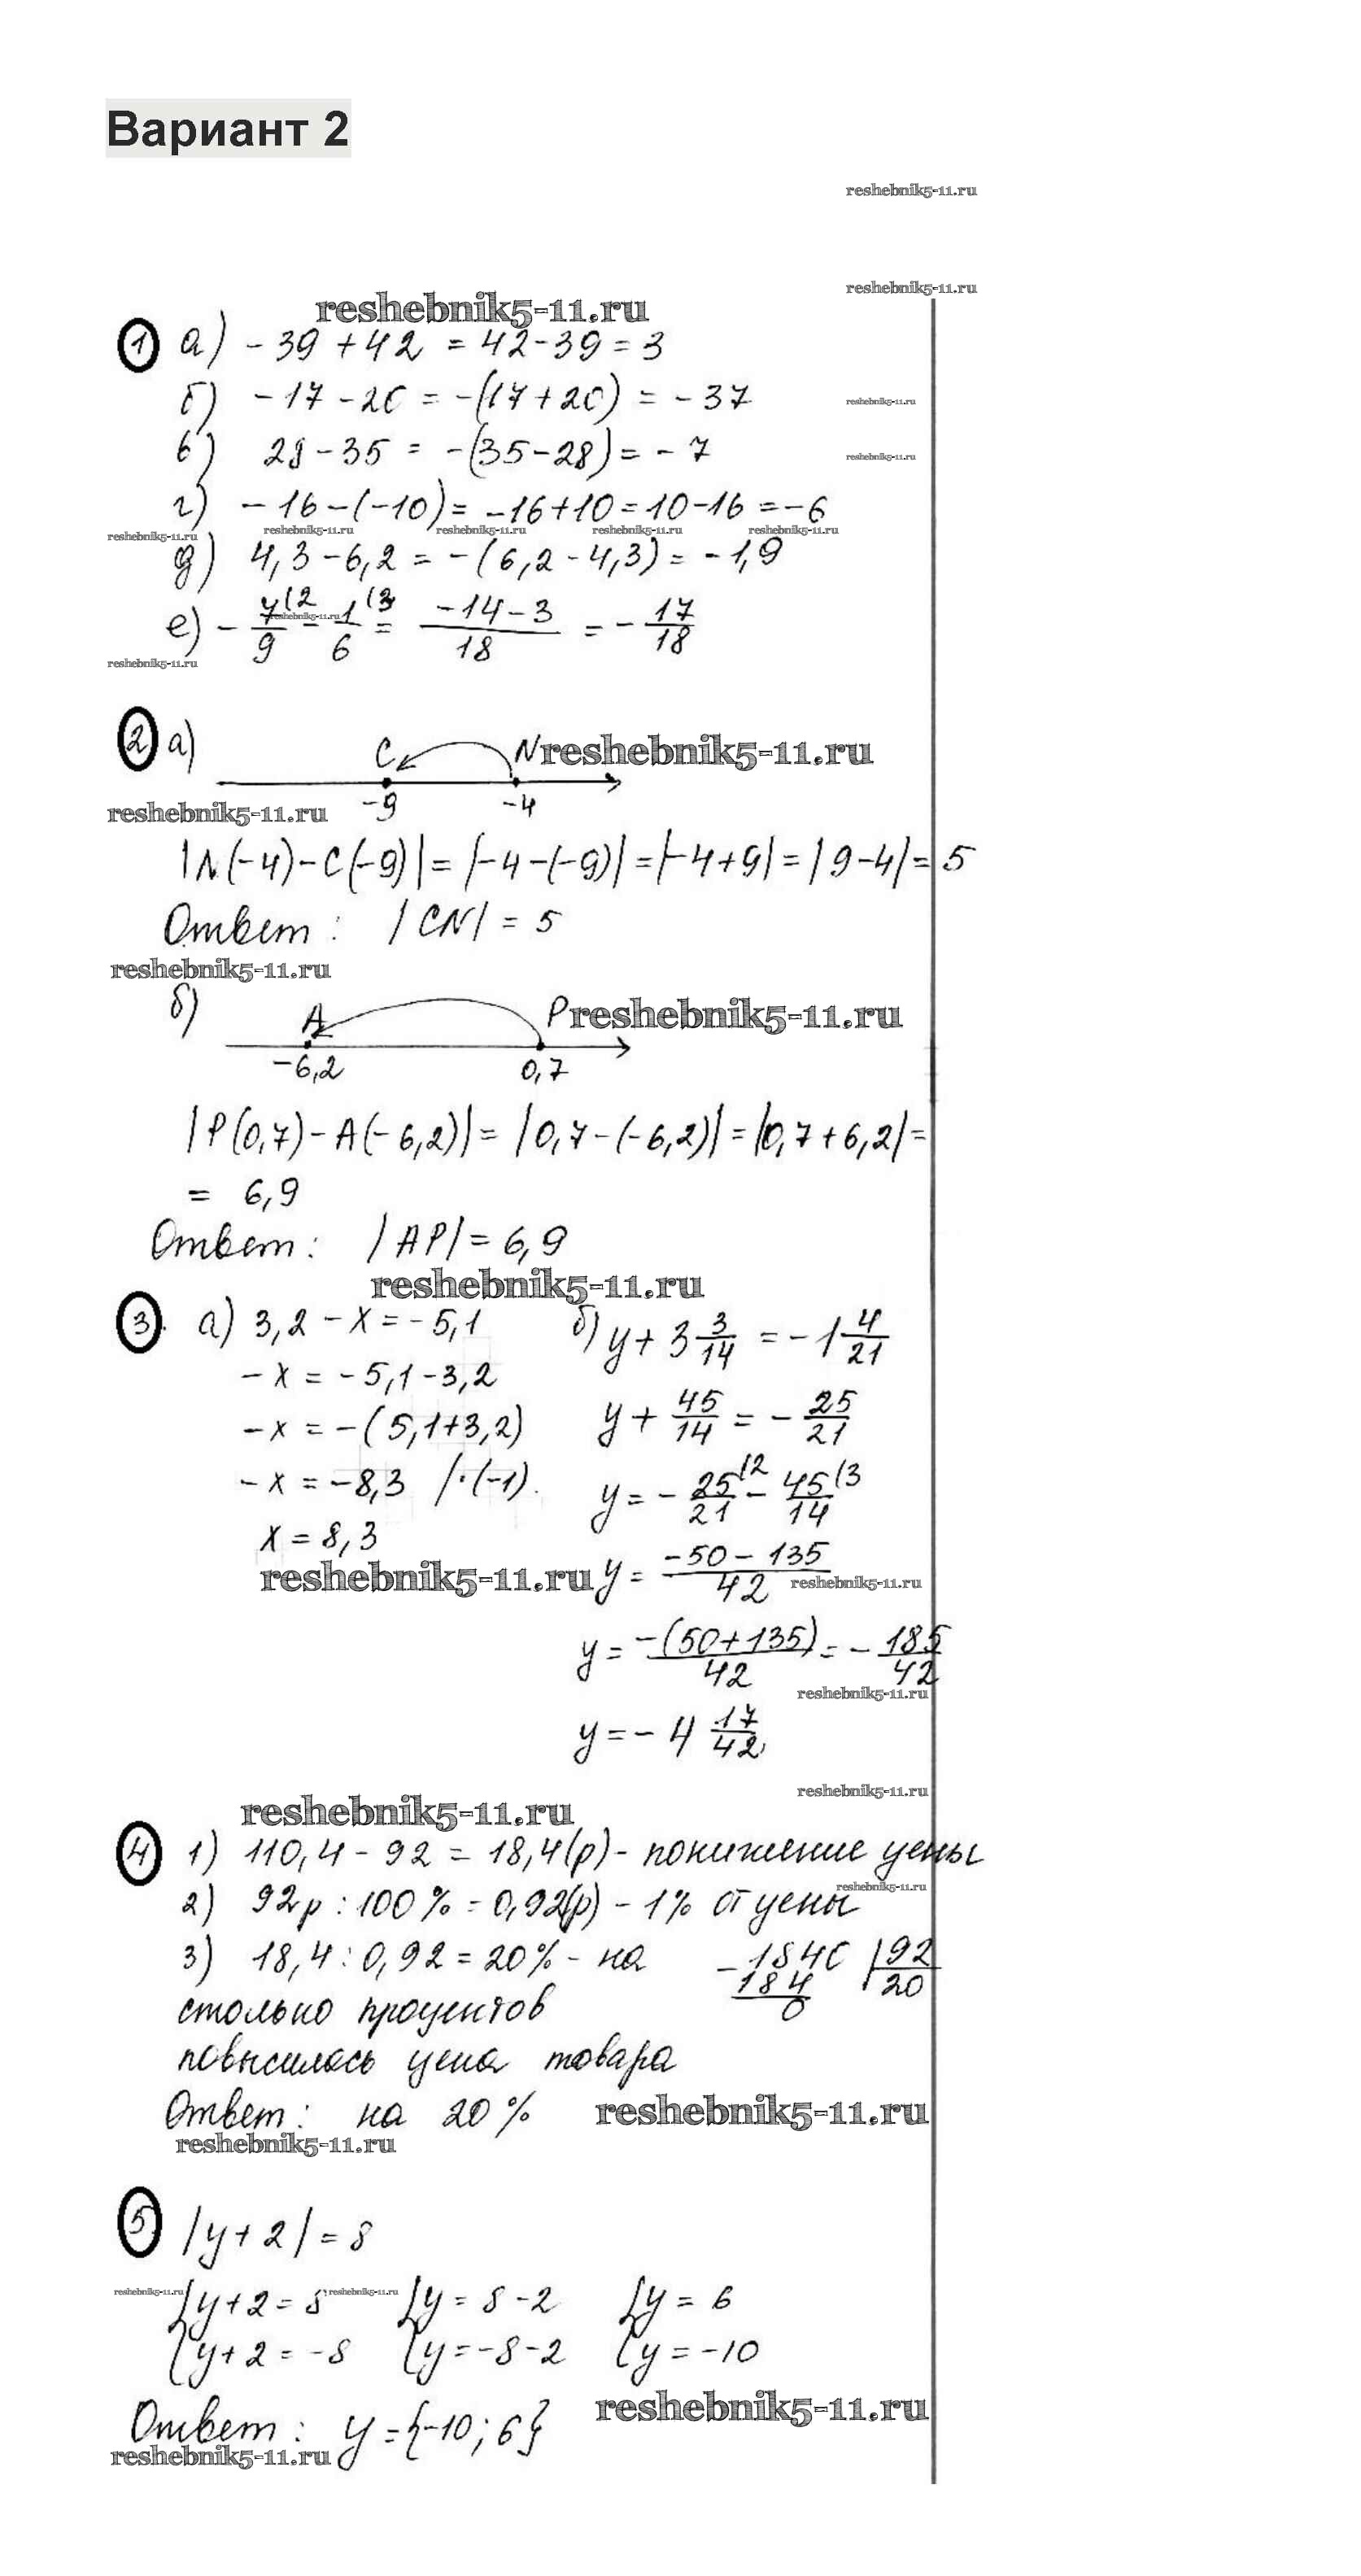 Вариант 2
reshebnik5-11.ru
reshebnik5-11.ru
reshebnik5-11.ru
1 а) -39+42 = 42-39=3
б) -17-20 = -(17+20) = -37
reshebnik5-11.ru
в) 28-35 = -(35-28) = -7
reshebnik5-11.ru
г) -16-(-10) = -16+10=10-16=-6
reshebnik5-11.ru reshebnik5-11.ru reshebnik5-11.ru reshebnik5-11.ru reshebnik5-11.ru
д) 4,3-6,2 = -(6,2-4,3) = -1,9
е) - 7(2/9 - 1(3/6 = (-14-3)/18 = - 17/18
reshebnik5-11.ru
reshebnik5-11.ru
2 а) C N reshebnik5-11.ru
-9 -4
reshebnik5-11.ru
|N(-4)-C(-9)| = |-4-(-9)| = |-4+9| = |9-4| = 5
Ответ: |CN| = 5
reshebnik5-11.ru
б) A P reshebnik5-11.ru
-6,2 0,7
|P(0,7)-A(-6,2)| = |0,7-(-6,2)| = |0,7+6,2| =
= 6,9
Ответ: |AP| = 6,9
reshebnik5-11.ru
3. а) 3,2-x=-5,1
-x = -5,1-3,2
-x = -(5,1+3,2)
-x = -8,3 /·(-1).
x = 8,3
reshebnik5-11.ru
б) y+3 3/14 = -1 4/21
y + 45/14 = - 25/21
y = - 25(2/21 - 45(3/14
y = (-50-135)/42
reshebnik5-11.ru
y = -(50+135)/42 = - 185/42
reshebnik5-11.ru
y = -4 17/42
reshebnik5-11.ru
reshebnik5-11.ru
4 1) 110,4-92 = 18,4(р)- понижение цены
reshebnik5-11.ru
2) 92р:100% = 0,92(р) - 1% от цены
3) 18,4:0,92 = 20% - на
-1840 |92
184 20
0
столько процентов
повысилась цена товара
Ответ: на 20% reshebnik5-11.ru
reshebnik5-11.ru
5 |y+2| = 8
reshebnik5-11.ru reshebnik5-11.ru
{y+2=8 {y=8-2 {y=6
{y+2=-8 {y=-8-2 {y=-10
reshebnik5-11.ru
Ответ: y={-10;6}
reshebnik5-11.ru